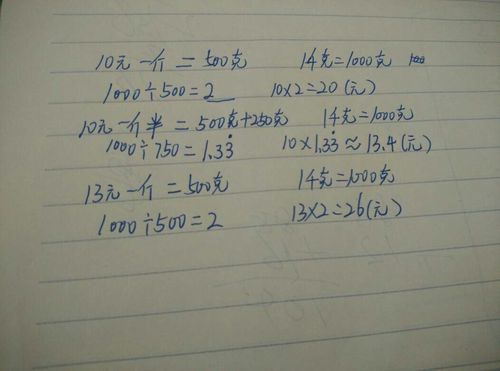 10元一斤=500克 14克=1000克
1000÷500=2 10×2=20(元)
10元一斤半=500克+250克 14克=1000克
1000÷750=1.3̇3̇ 10×1.3̇3̇≈13.4(元)
13元一斤=500克 14克=1000克
1000÷500=2 13×2=26(元)